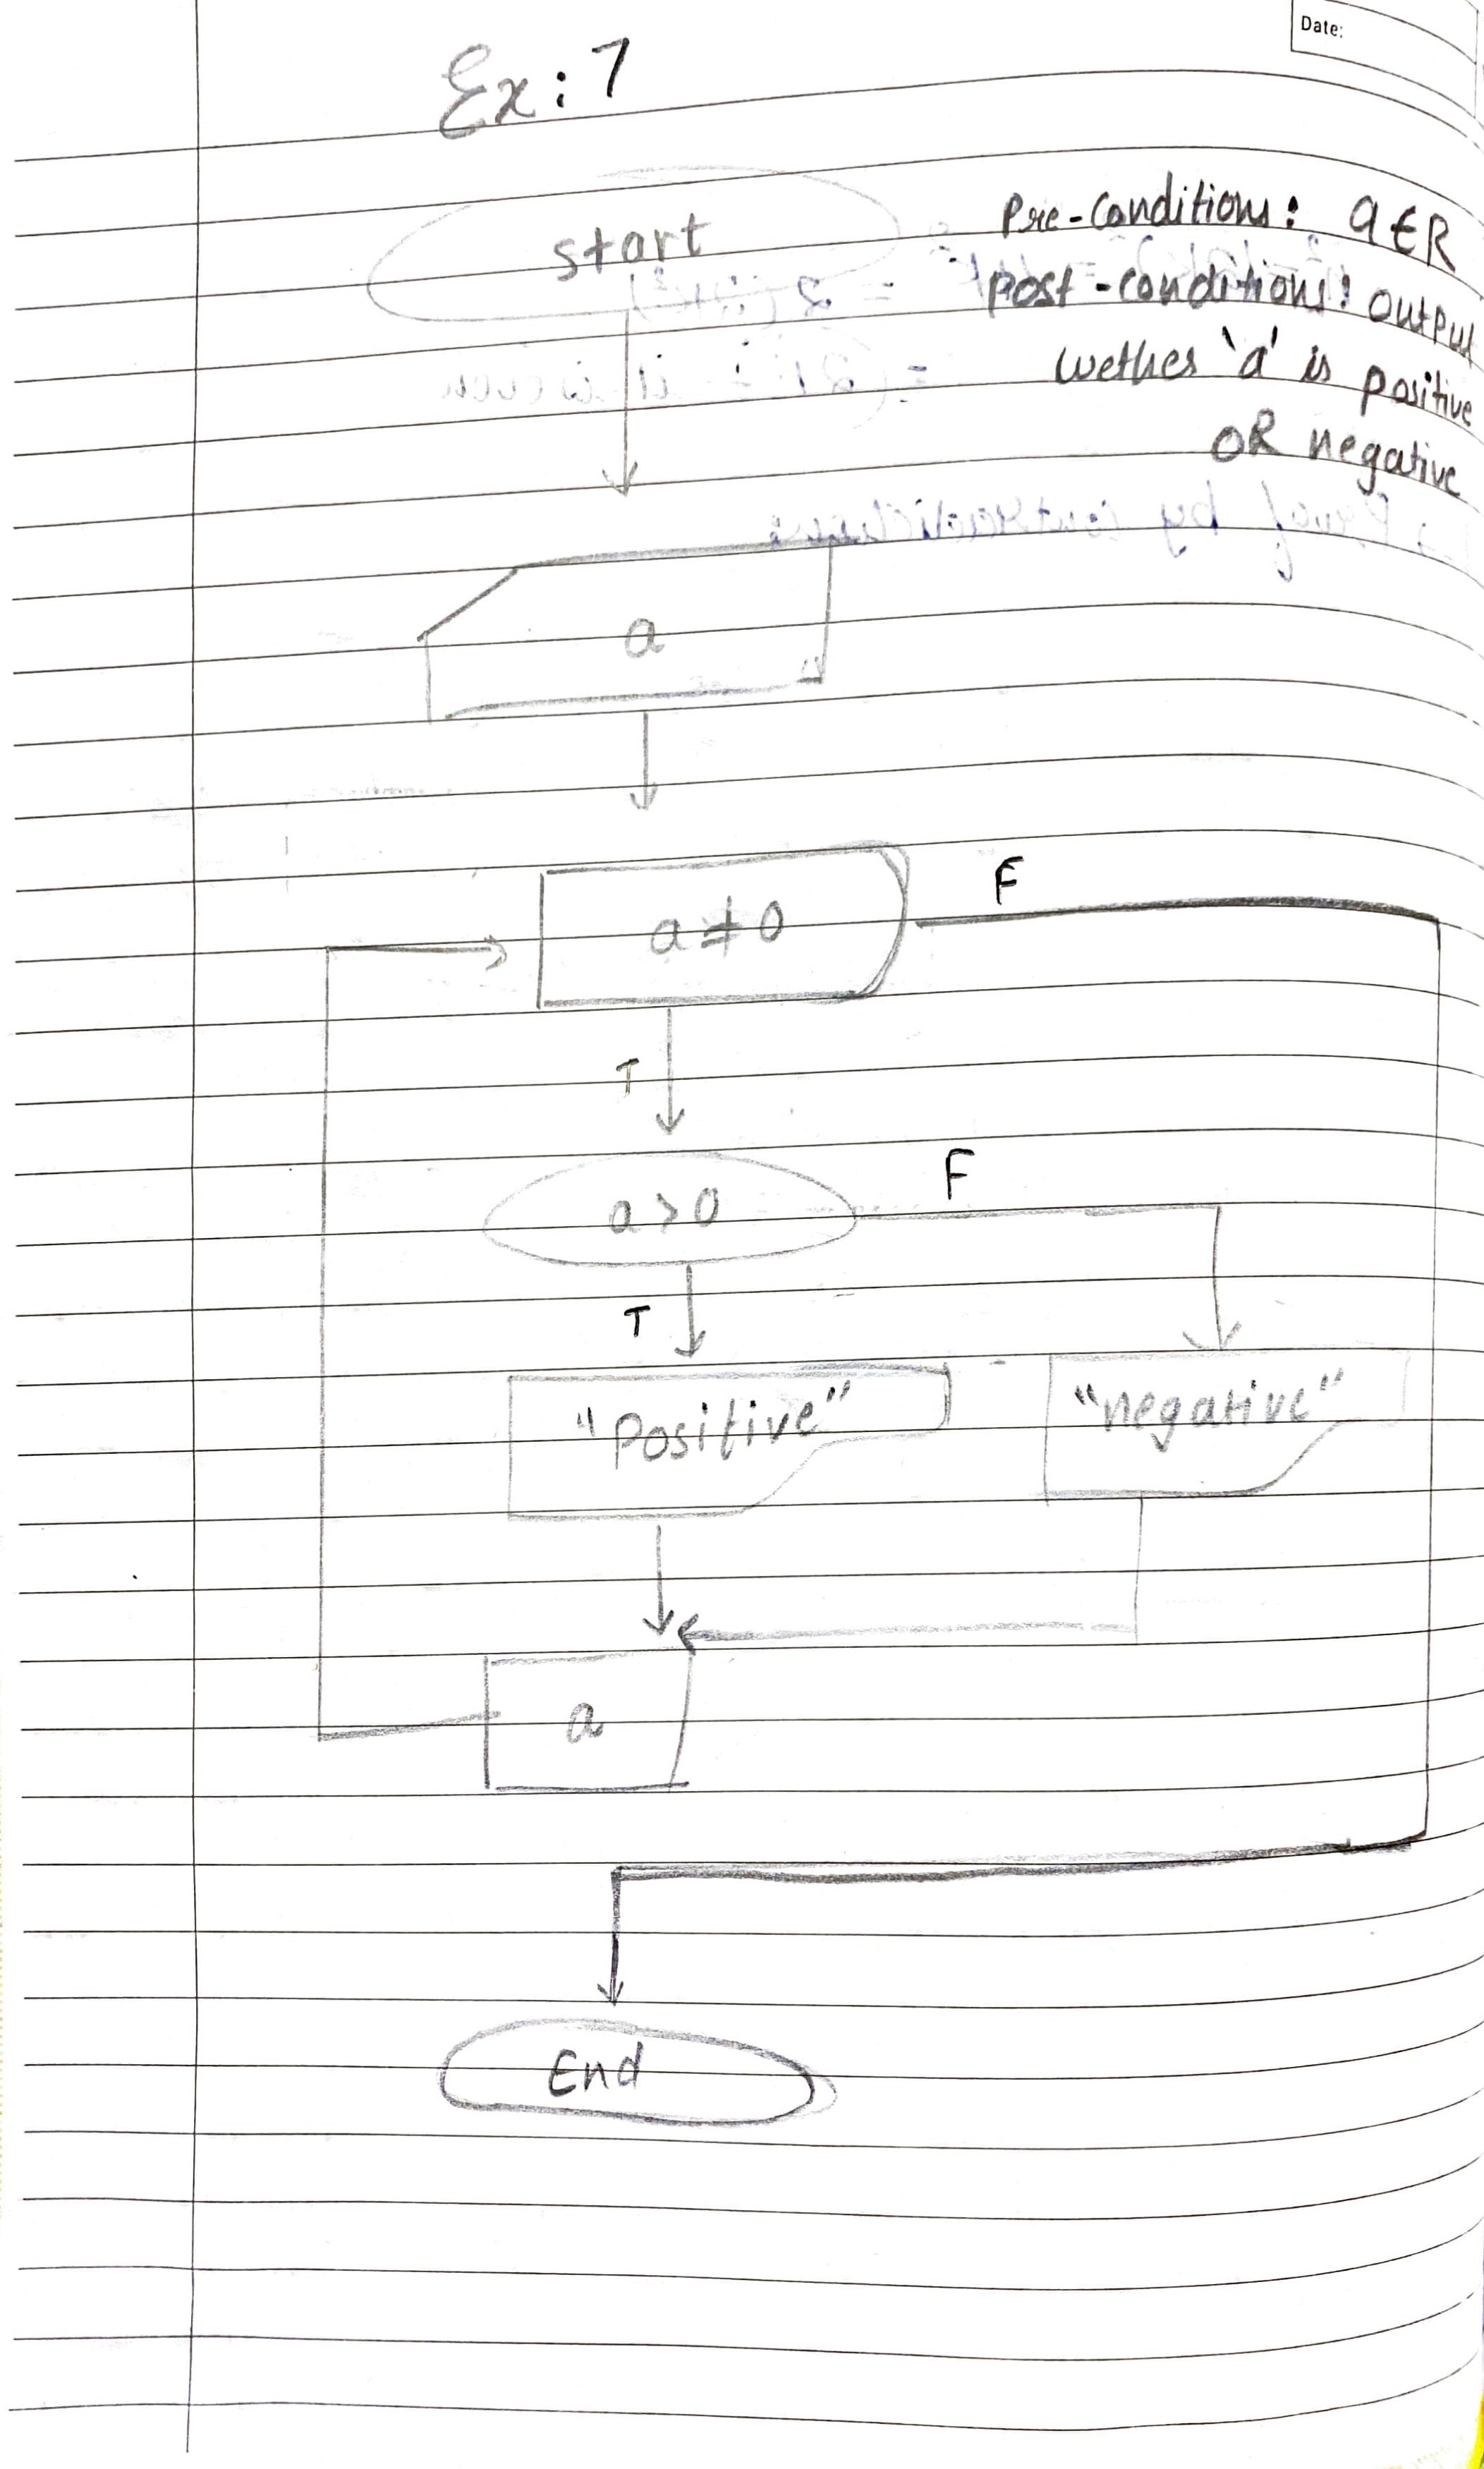 Date:
Ex: 7
start
Pre-Conditions: a ∈ R
Post-conditions: output
wether 'a' is positive
OR negative
a
a ≠ 0
F
T
a > 0
F
T
"Positive"
"negative"
a
End